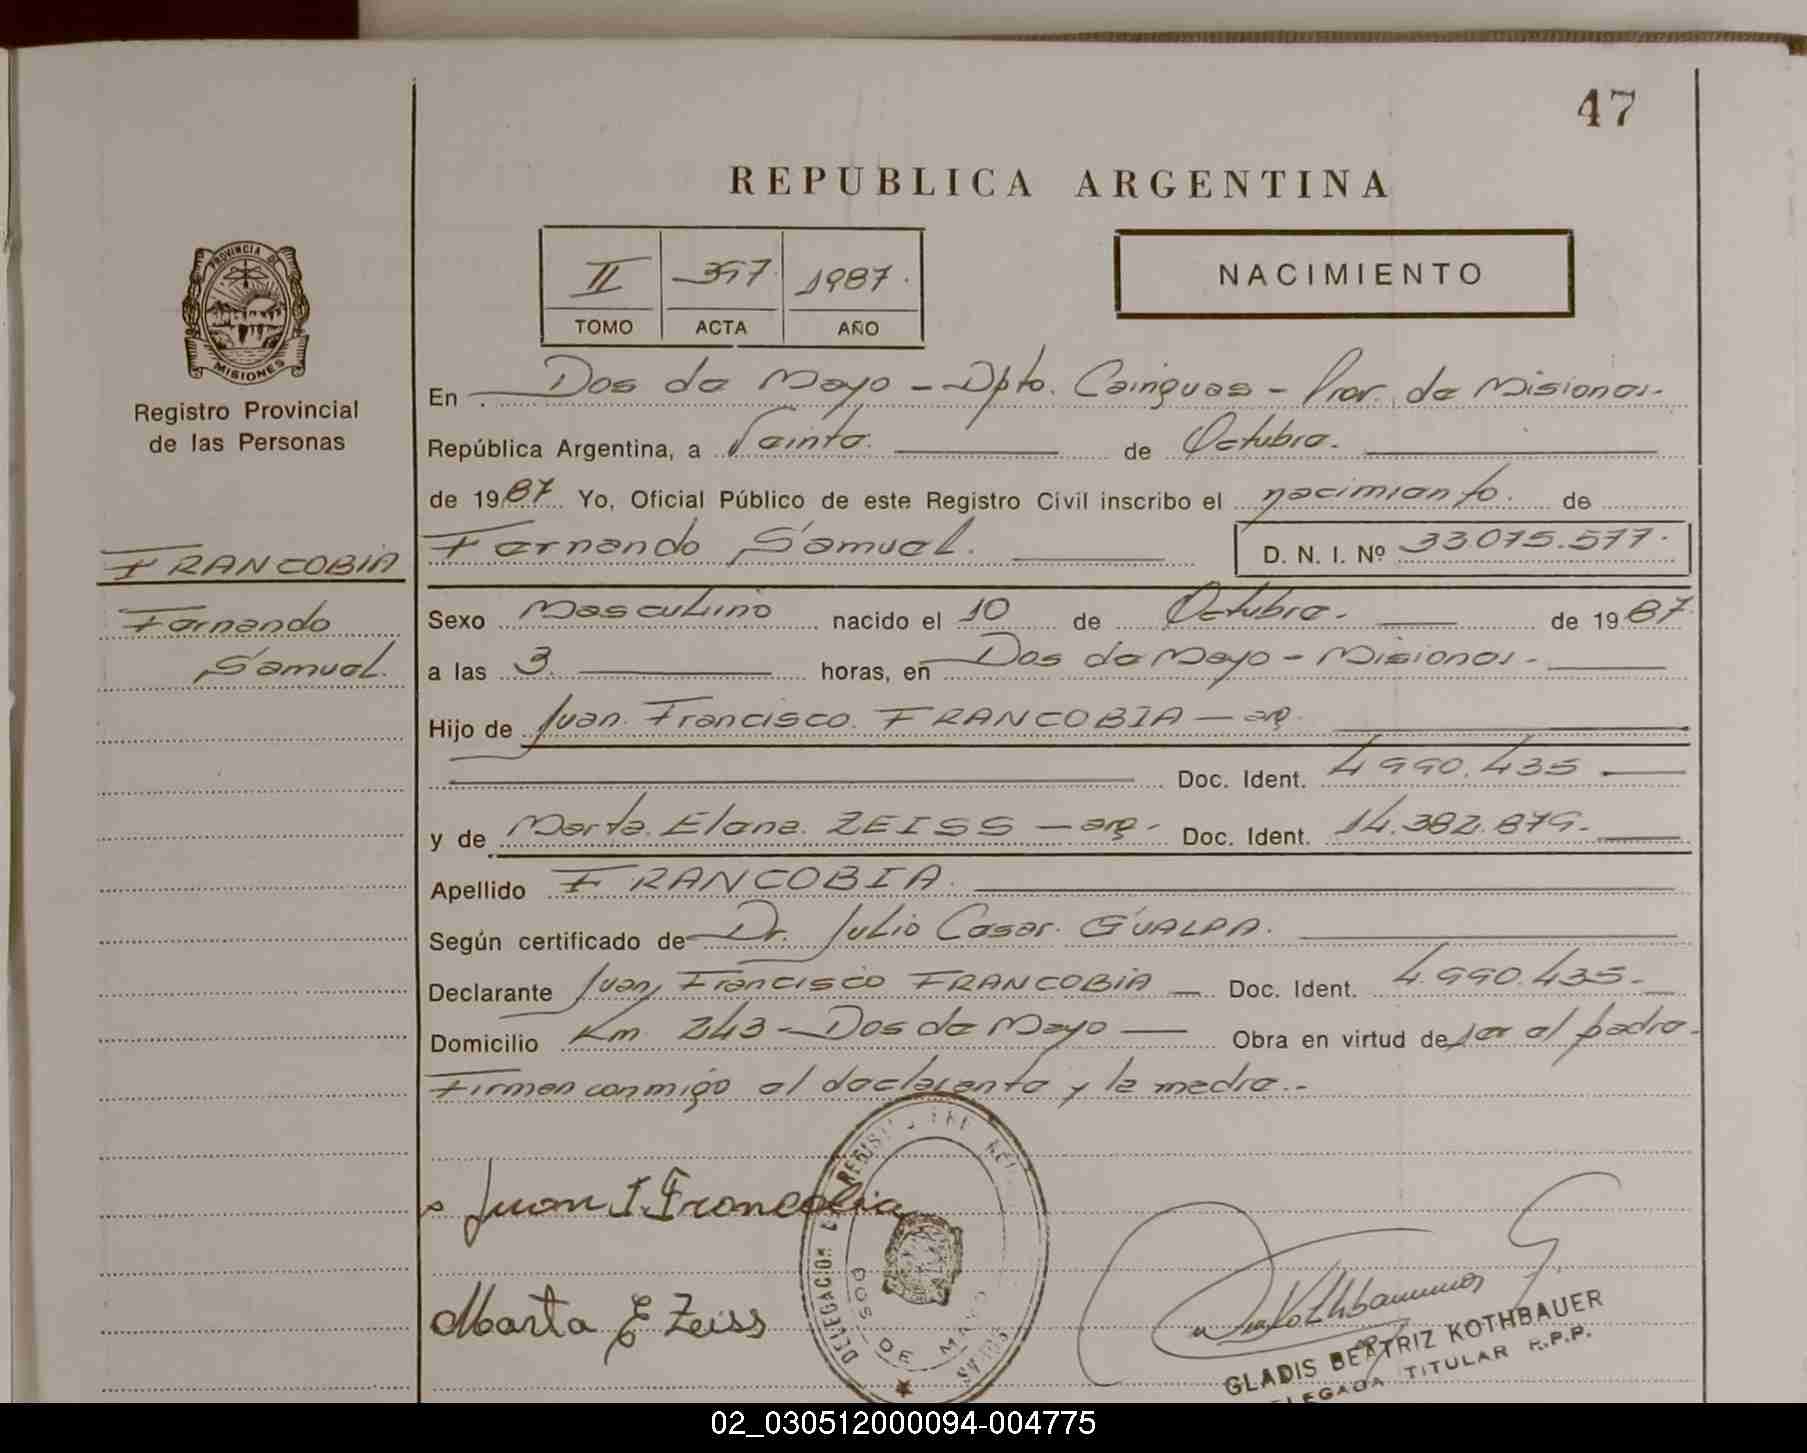 47
REPUBLICA ARGENTINA
PROVINCIA DE
MISIONES
Registro Provincial
de las Personas
II 397 1987.
TOMO ACTA AÑO
NACIMIENTO
En Dos de Mayo - Dpto. Cainguas - Prov. de Misiones.-
República Argentina, a Veinte. de Octubre.
de 1987. Yo, Oficial Público de este Registro Civil inscribo el nacimiento. de
FRANCOBIA
Fernando Samuel. D. N. I. Nº 33075.577.
Fernando
Samuel.
Sexo Masculino nacido el 10 de Octubre. de 1987
a las 3. horas, en Dos de Mayo - Misiones.-
Hijo de Juan Francisco FRANCOBIA - arg.
Doc. Ident. 4990.435
y de Marta Elena ZEISS - arg.- Doc. Ident. 14.382.879.-
Apellido FRANCOBIA.
Según certificado de Dr. Julio Cesar GUALPA.
Declarante Juan Francisco FRANCOBIA Doc. Ident. 4.990.435.-
Domicilio Km 243 - Dos de Mayo Obra en virtud de ser el padre.
Firman conmigo el declarante y la madre.-
Juan F. Francobia
DELEGACION REGISTRO
DOS DE MAYO
Marta E Zeiss
GLADIS BEATRIZ KOTHBAUER
DELEGADA TITULAR R.P.P.
02_030512000094-004775